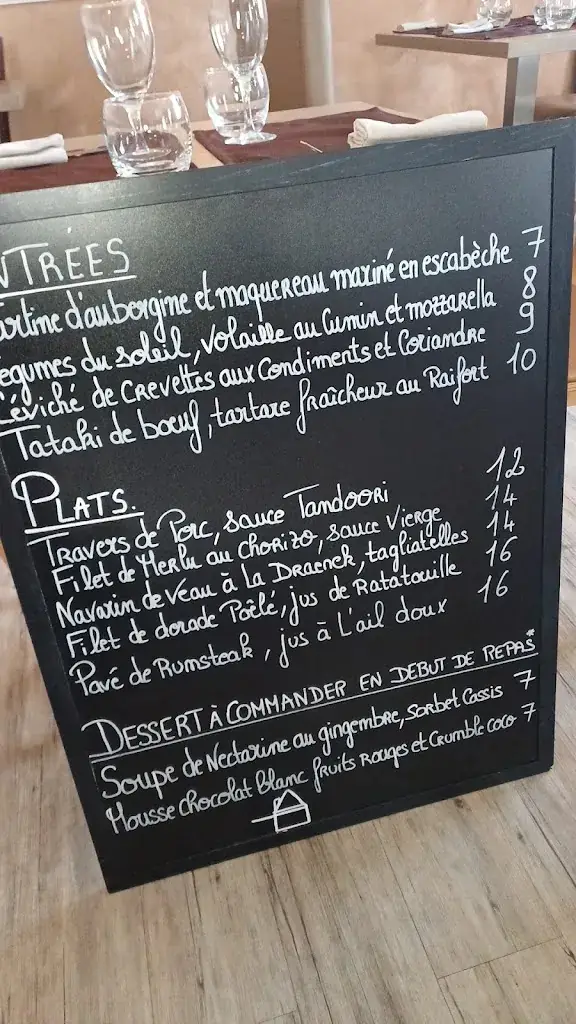 NTRÉES
artine d'aubergine et maquereau mariné en escabèche 7
égumes du soleil, volaille au Cumin et mozzarella 8
Ceviché de Crevettes aux Condiments et Coriandre 9
Tataki de bœuf, tartare fraîcheur au Raifort 10
PLATS.
Travers de Porc, sauce Tandoori 12
Filet de Merlu au Chorizo, sauce Vierge 14
Navarin de veau à la Draenek, tagliatelles 14
Filet de dorade Poêlé, jus de Ratatouille 16
Pavé de Rumsteak, jus à l'ail doux 16
DESSERT À COMMANDER EN DEBUT DE REPAS*
Soupe de Nectarine au gingembre, Sorbet Cassis 7
Mousse Chocolat Blanc fruits Rouges et Crumble coco 7